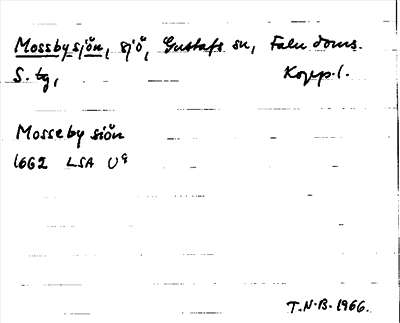 Mossbysjön, sjö, Gustafs sn, Falu doms.
S. tg, Kopp.l.
Mosseby siön
1662 LSA U9
T.N.B. 1966.